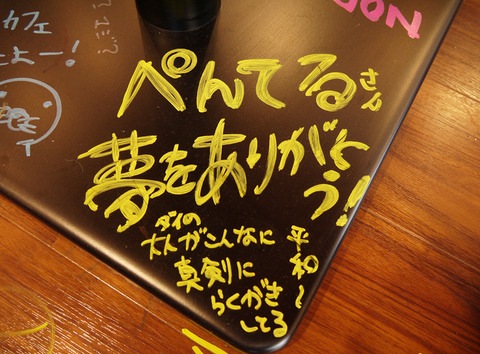 ぺんてるさん
夢をありがとう!
ダイの
大人がこんなに
真剣に
らくがき
してる
平和~
カフェ
たよー!